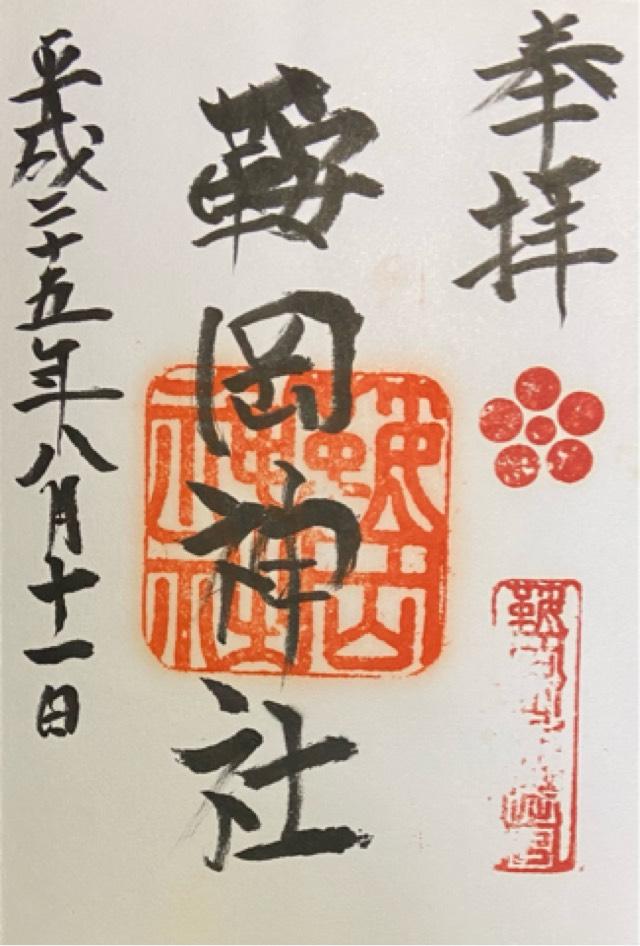 奉拝
鞍岡神社
平成二十五年八月十一日